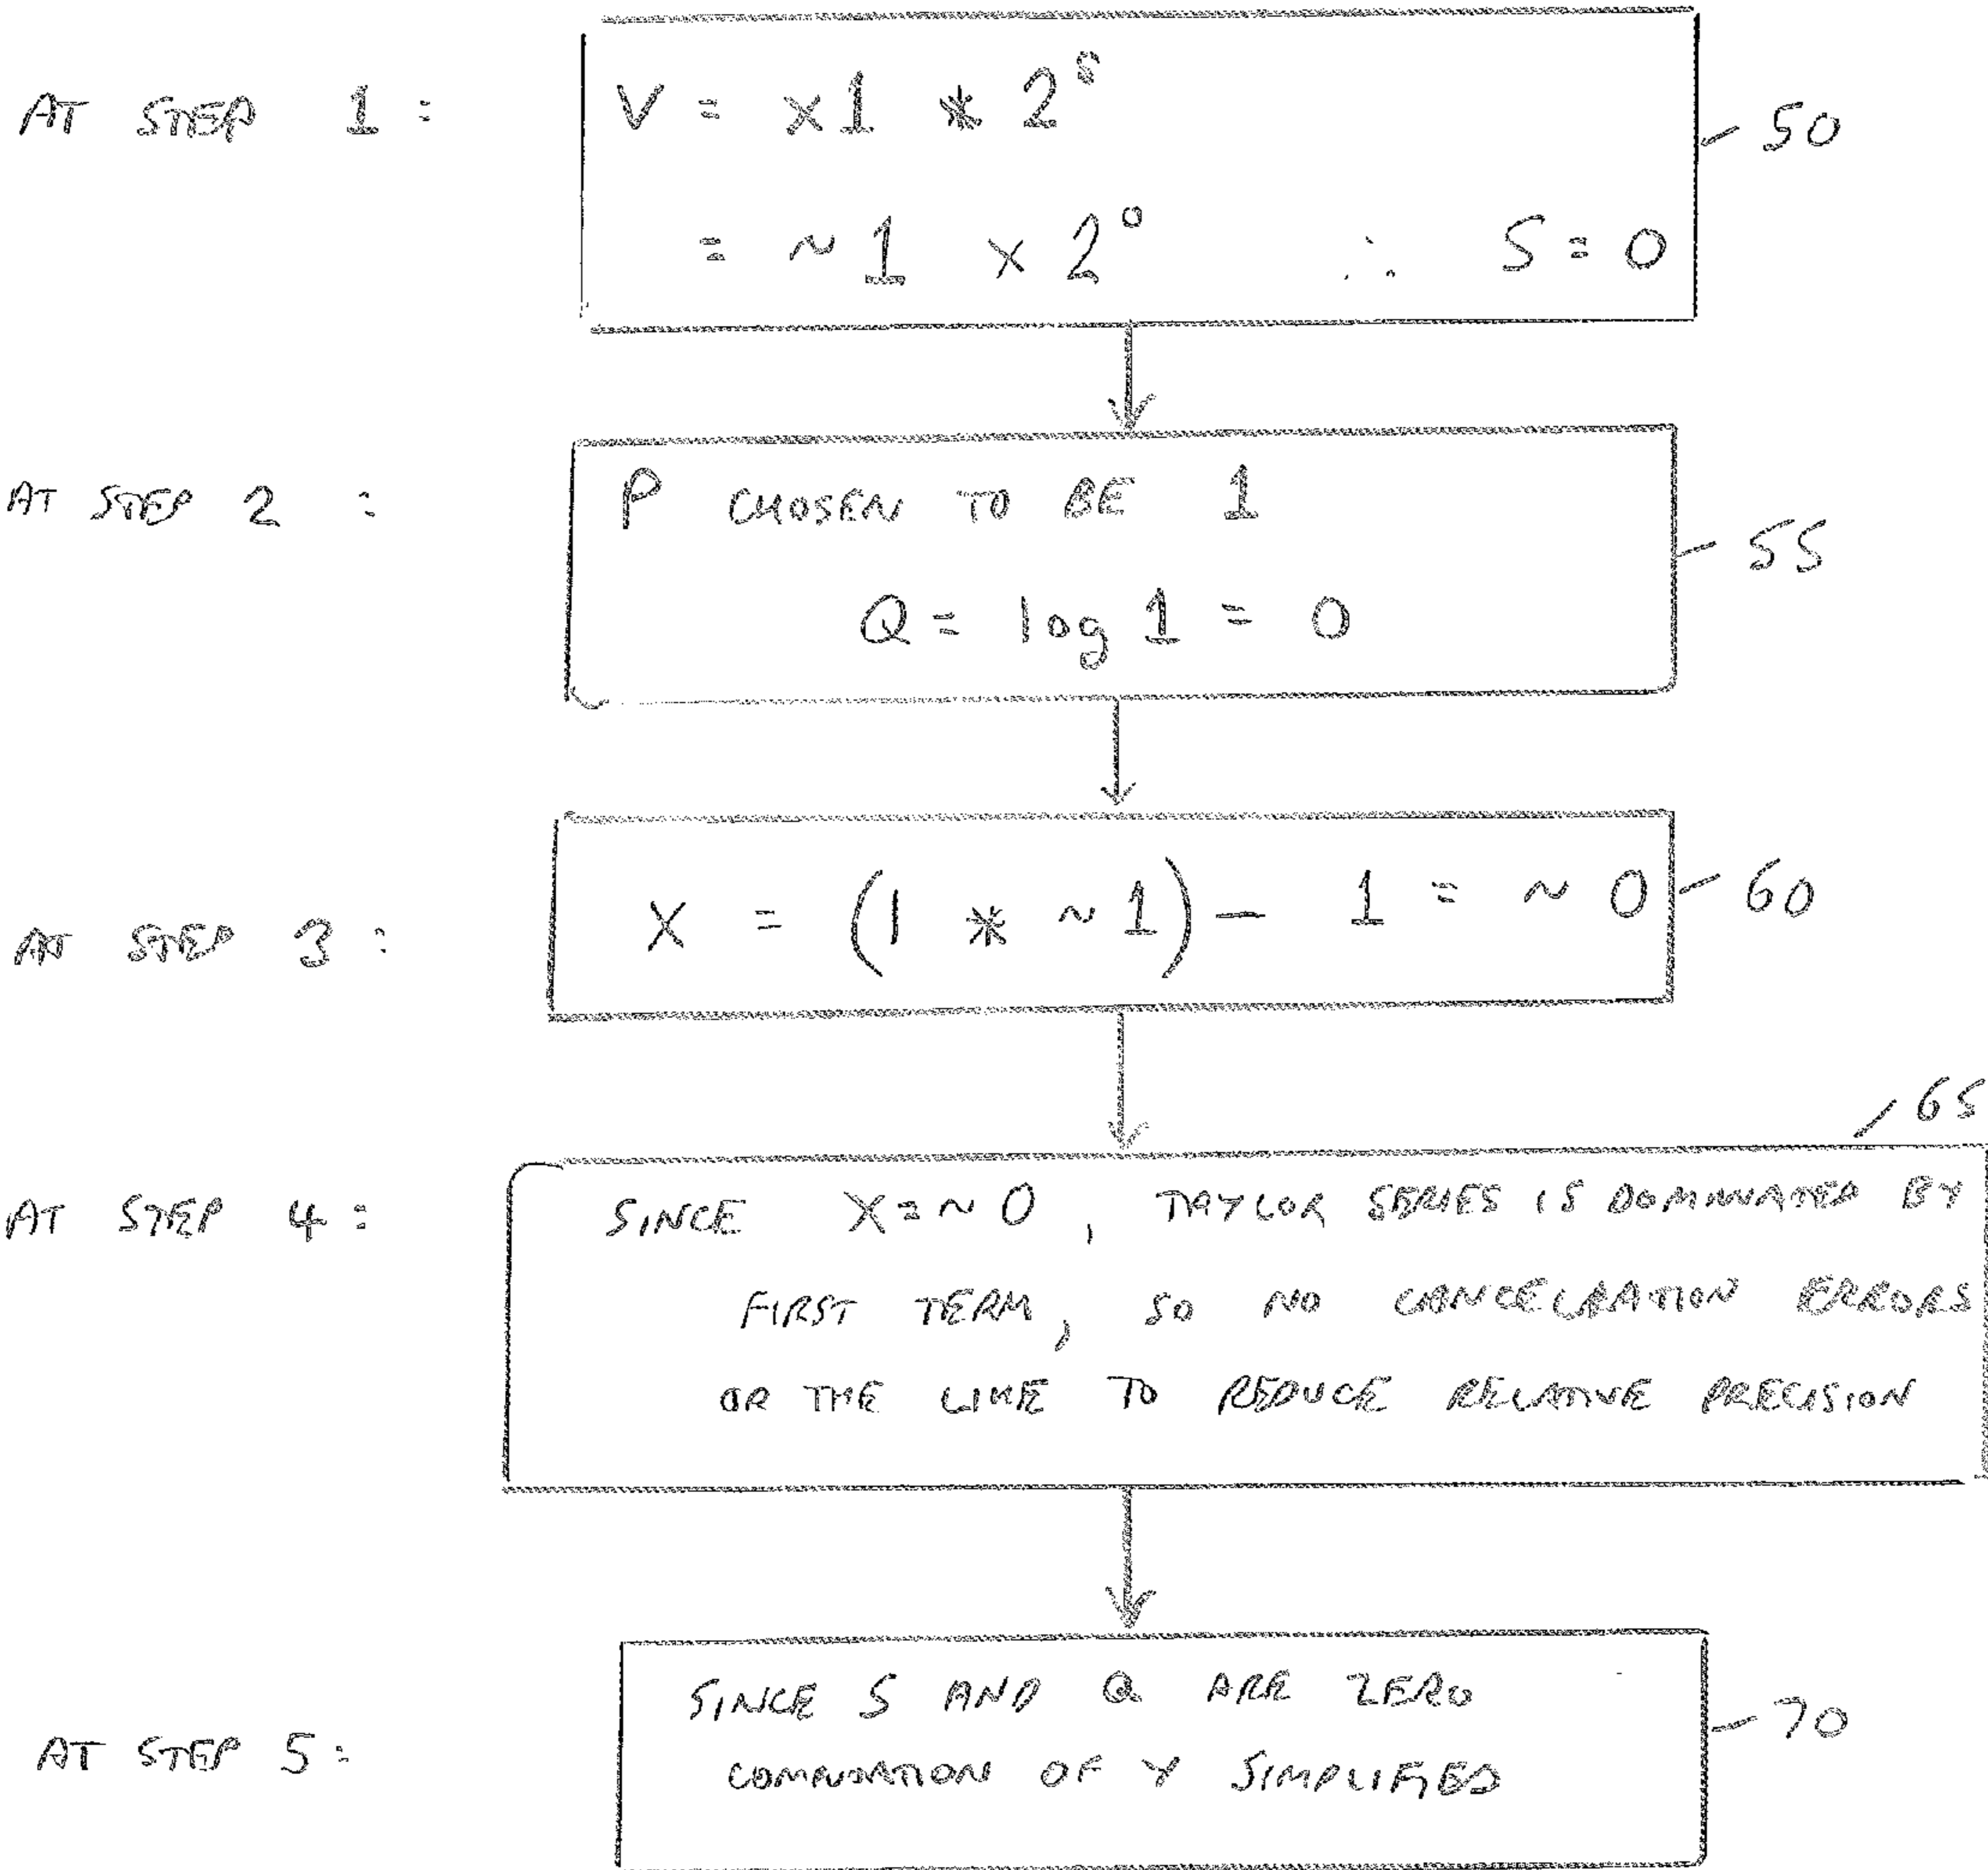 AT STEP 1 :
V = x1 * 2^s
50
= ~1 x 2^0 ∴ S = 0
AT STEP 2 :
P CHOSEN TO BE 1
55
Q = log 1 = 0
AT STEP 3 :
X = (1 * ~1) - 1 = ~0
60
65
AT STEP 4 :
SINCE X = ~0, TAYLOR SERIES IS DOMINATED BY
FIRST TERM, SO NO CANCELLATION ERRORS
OR THE LIKE TO REDUCE RELATIVE PRECISION
AT STEP 5 :
SINCE S AND Q ARE ZERO
70
COMPUTATION OF Y SIMPLIFIED